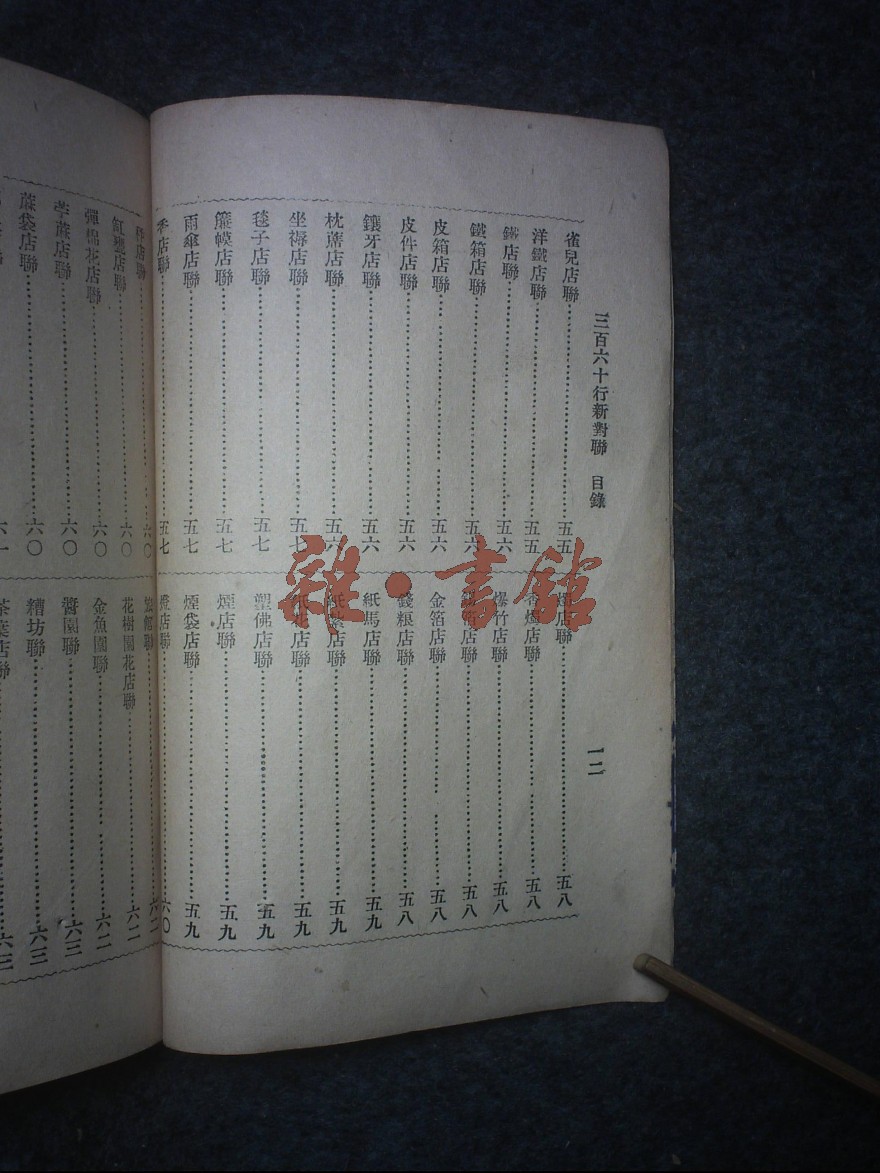 三百六十行新對聯 目錄 一二
雀兒店聯 五五
洋鐵店聯 五五
鐵店聯 五六
鐵箱店聯 五六
皮箱店聯 五六
皮件店聯 五六
鑲牙店聯 五六
枕蓆店聯 五六
坐褥店聯 五七
毯子店聯 五七
簾幙店聯 五七
雨傘店聯 五七
香店聯 五七
燈店聯 五八
店聯 五八
爆竹店聯 五八
箔店聯 五八
金箔店聯 五八
錢糧店聯 五八
紙馬店聯 五九
紙紮店聯 五九
紙花店聯 五九
塑佛店聯 五九
煙店聯 五九
煙袋店聯 五九
店聯 六〇
店聯 六〇
缸甕店聯 六〇
彈棉花店聯 六〇
苧蔴店聯 六〇
蔴袋店聯 六〇
店聯 六一
聯 六二
花樹園花店聯 六二
金魚園聯 六二
醬園聯 六三
糟坊聯 六三
茶葉店聯 六三
雜·書館